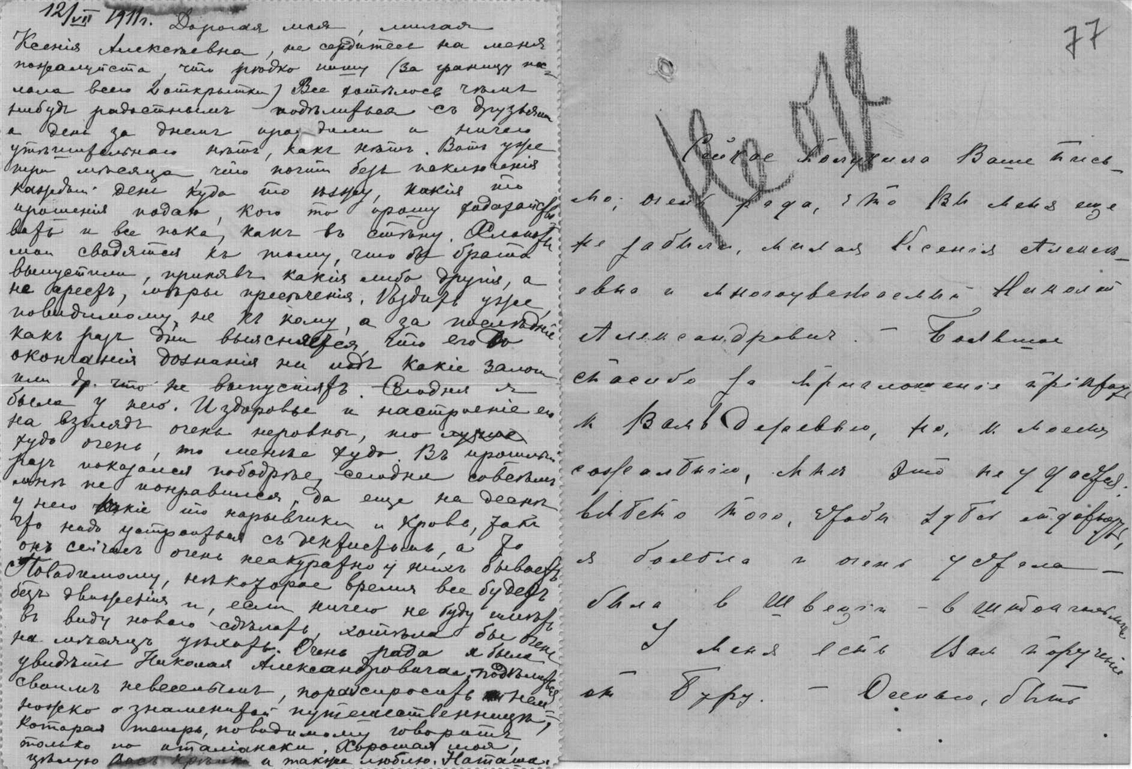 12/VII 1911г. Дорогая моя, милая
Ксенія Алексѣевна, не сердитесь на меня
пожалуйста что рѣдко пишу (за границу по-
слала всего 2 открытки) Все хотѣлось чѣмъ
нибудь радостнымъ подѣлиться съ друзьями
а день за днемъ проходили и ничего
утѣшительнаго нѣтъ, какъ нѣтъ. Вотъ уже
три мѣсяца, что почти безъ исключенія
каждый день куда то хожу, какія то
прошенія подаю, кого то прошу
и все пока, какъ въ стѣну. Хлопоты
мои сводятся къ тому, что бы брата
выпустили, принявъ какія либо другія, а
не арестъ, мѣры пресѣченія. Ѣздить уже,
повидимому, не къ кому, а за послѣдніе
какъ разъ дни выясняется, что его до
окончанія дознанія ни подъ какіе залоги
или др. что не выпустятъ. Сегодня я
была у него. И здоровье и настроеніе его
на взглядъ очень неровны, то
худо очень, то менѣе худо. Въ прошлый
разъ показался пободрѣе, сегодня совсѣмъ
мнѣ не понравился, да еще на деснѣ
у него какіе то нарывчики и кровь,
надо устроиться съ дантистомъ, а
онъ сейчасъ очень неакуратно у нихъ бываетъ
Повидимому, нѣкоторое время все будетъ
безъ движенія и, если ничего не буду имѣть
въ виду новаго сдѣлать, хотѣла бы
на мѣсяцъ уѣхать. Очень рада я была
увидѣть Николая Александровича, подѣлиться
своимъ невеселымъ, поразспросить нем-
ножко о знаменитой путешественницѣ,
которая теперь, повидимому говоритъ
только по италіански. Хорошая моя,
цѣлую Васъ крѣпко и также люблю. Наташа
77
Сейчас получила Ваше пись-
мо; очень рада, что Вы меня еще
не забыли, милая Ксенія Алексѣ-
евна и многоуважаемый Николай
Александрович. — Большое
спасибо за приглашеніе пріѣхать
к Вам в деревню, но, к моему
сожалѣнію, мнѣ это не удастся.
вмѣсто того, чтобы
я болѣла и очень устала —
была в Швеціи — в Штокгольмѣ
У меня есть Вам порученіе
от Буру. — Осенью, быть